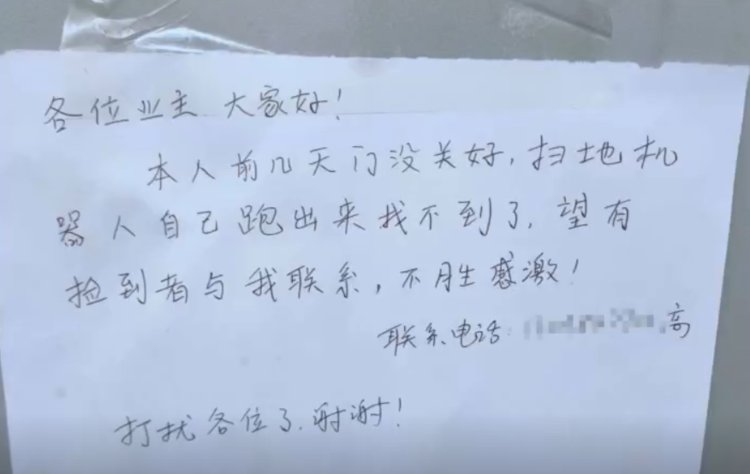 各位业主 大家好!
本人前几天门没关好,扫地机
器人自己跑出来找不到了,望有
捡到者与我联系,不胜感激!
联系电话: 高
打扰各位了,谢谢!